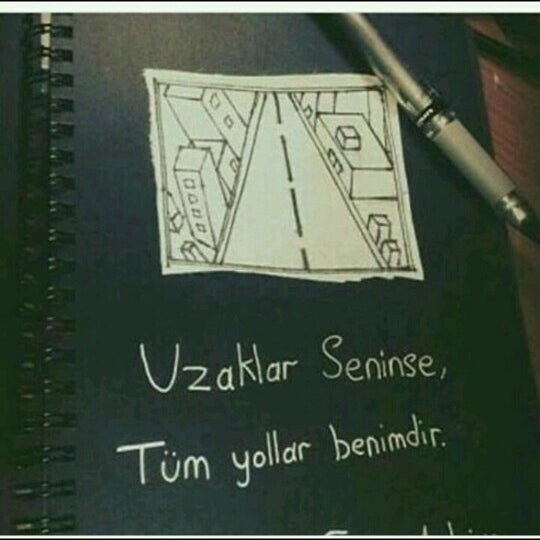 Uzaklar Seninse,
Tüm yollar benimdir.